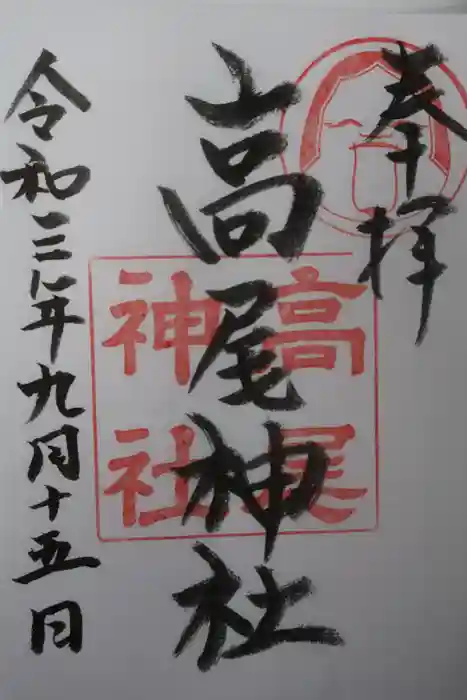 奉拝
高尾神社
令和三年九月十五日
高尾
神社